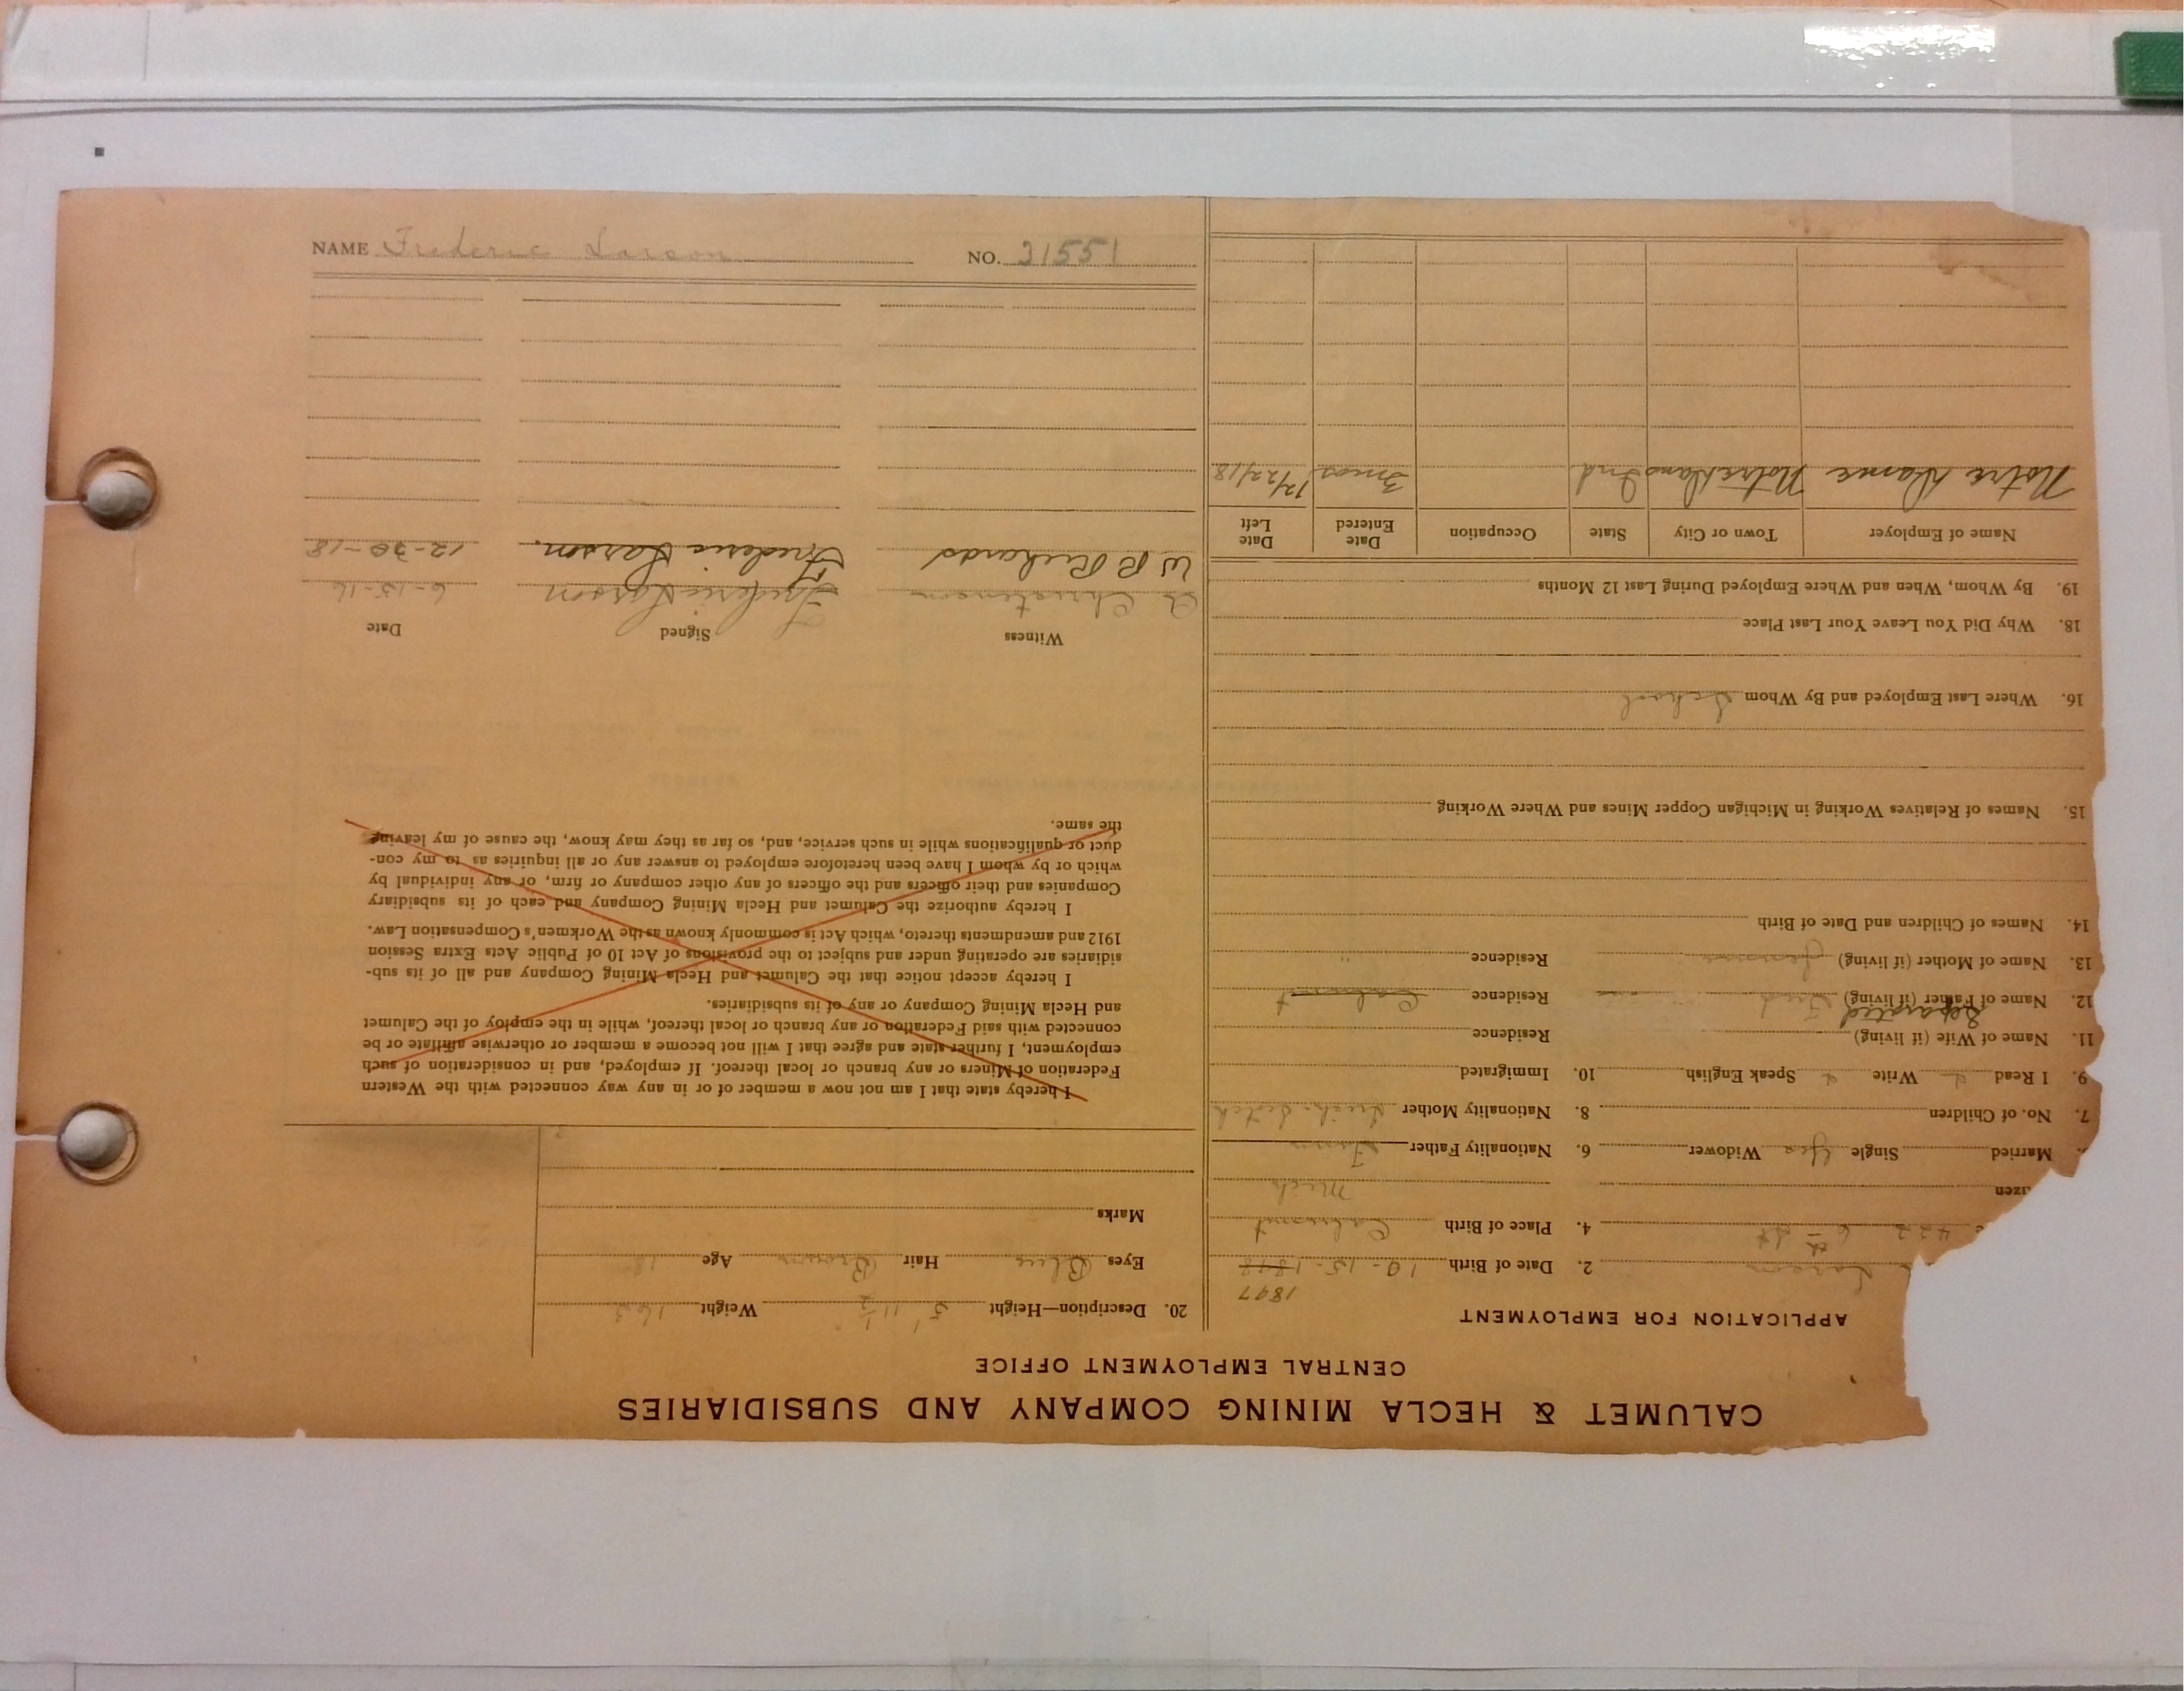 CALUMET & HECLA MINING COMPANY AND SUBSIDIARIES
CENTRAL EMPLOYMENT OFFICE
APPLICATION FOR EMPLOYMENT
Larson 2. Date of Birth 10-15-1898 1897
422 6th St 4. Place of Birth Calumet
izen Mich
Married Single Yes Widower 6. Nationality Father
7. No. of Children 8. Nationality Mother
9. I Read Write Speak English 10. Immigrated
11. Name of Wife (if living) Residence
Separated
12. Name of Father (if living) Fred Residence Calumet
13. Name of Mother (if living) Residence "
14. Names of Children and Date of Birth
15. Names of Relatives Working in Michigan Copper Mines and Where Working
16. Where Last Employed and By Whom School
18. Why Did You Leave Your Last Place
19. By Whom, When and Where Employed During Last 12 Months
Name of Employer Town or City State Occupation Date Entered Date Left
Notre Dame Notre Dame Ind 3 mos 12/22/18
20. Description—Height 5' 11 1/2" Weight 163
Eyes Blue Hair Brown Age 18
Marks
I hereby state that I am not now a member of or in any way connected with the Western
Federation of Miners or any branch or local thereof. If employed, and in consideration of such
employment, I further state and agree that I will not become a member or otherwise affiliate or be
connected with said Federation or any branch or local thereof, while in the employ of the Calumet
and Hecla Mining Company or any of its subsidiaries.
I hereby accept notice that the Calumet and Hecla Mining Company and all of its sub-
sidiaries are operating under and subject to the provisions of Act 10 of Public Acts Extra Session
1912 and amendments thereto, which Act is commonly known as the Workmen's Compensation Law.
I hereby authorize the Calumet and Hecla Mining Company and each of its subsidiary
Companies and their officers and the officers of any other company or firm, or any individual by
which or by whom I have been heretofore employed to answer any or all inquiries as to my con-
duct or qualifications while in such service, and, so far as they may know, the cause of my leaving
the same.
Witness Signed Date
Christenson Frederic Larson 6-15-16
W R Richards Frederic Larson. 12-30-18
NAME Frederic Larson NO. 31551